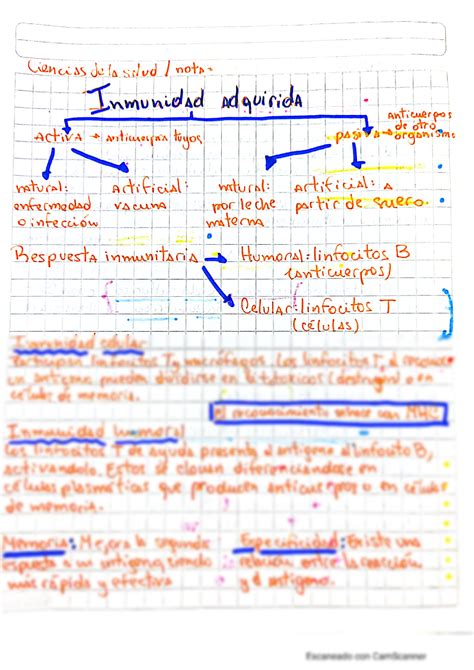 Ciencias de la salud / nota=
Inmunidad adquirida
activa → anticuerpos tuyos
pasiva → Anticuerpos de otro organismo
natural: enfermedad o infección
Artificial: vacuna
natural: por leche materna
artificial: a partir de suero.
Respuesta inmunitaria → Humoral: linfocitos B
(anticuerpos)
Celular: linfocitos T
(células)
Inmunidad celular
Participan linfocitos T y macrófagos. Los linfocitos T, al reconocer
un antígeno pueden dividirse en T citotóxicos (destruyen) o en
células de memoria.
El reconocimiento se hace con MHC
Inmunidad humoral
Los linfocitos T de ayuda presenta el antígeno al linfocito B,
activándolo. Estos se clonan diferenciándose en
células plasmáticas que producen anticuerpos o en células
de memoria.
Memoria: Mejora la segunda
respuesta a un antígeno, siendo
más rápida y efectiva
Especificidad: Existe una
relación entre la reacción
y el antígeno.
Escaneado con CamScanner